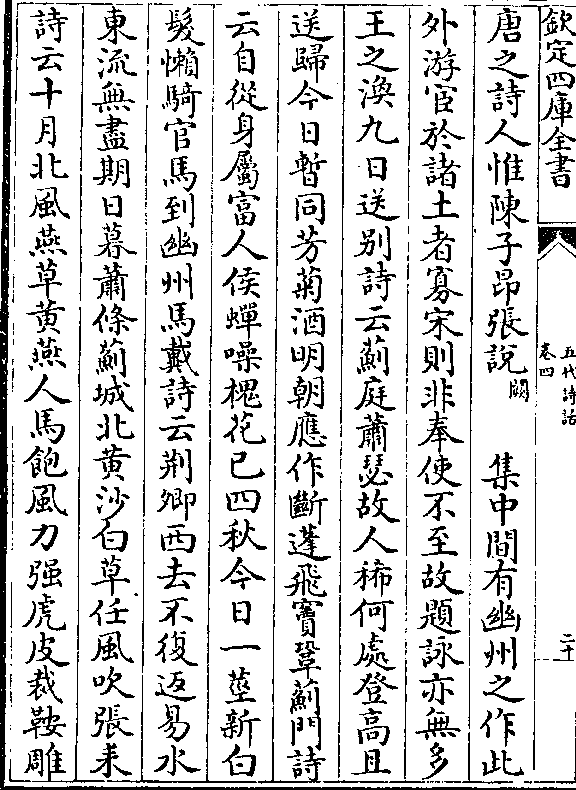 欽定四庫全書
五代詩話
卷四
二十
唐之詩人惟陳子昂張説闕 集中間有幽州之作此
外游宦於諸土者寡宋則非奉使不至故題詠亦無多
王之渙九日送别詩云薊庭蕭瑟故人稀何處登髙且
送歸今日暫同芳菊酒明朝應作斷蓬飛竇鞏薊門詩
云自從身屬富人侯蟬噪槐花已四秋今日一莖新白
髮懶騎官馬到幽州馬戴詩云荆卿西去不復返易水
東流無盡期日暮蕭條薊城北黄沙白草任風吹張耒
詩云十月北風燕草黄燕人馬飽風力强虎皮裁鞍雕